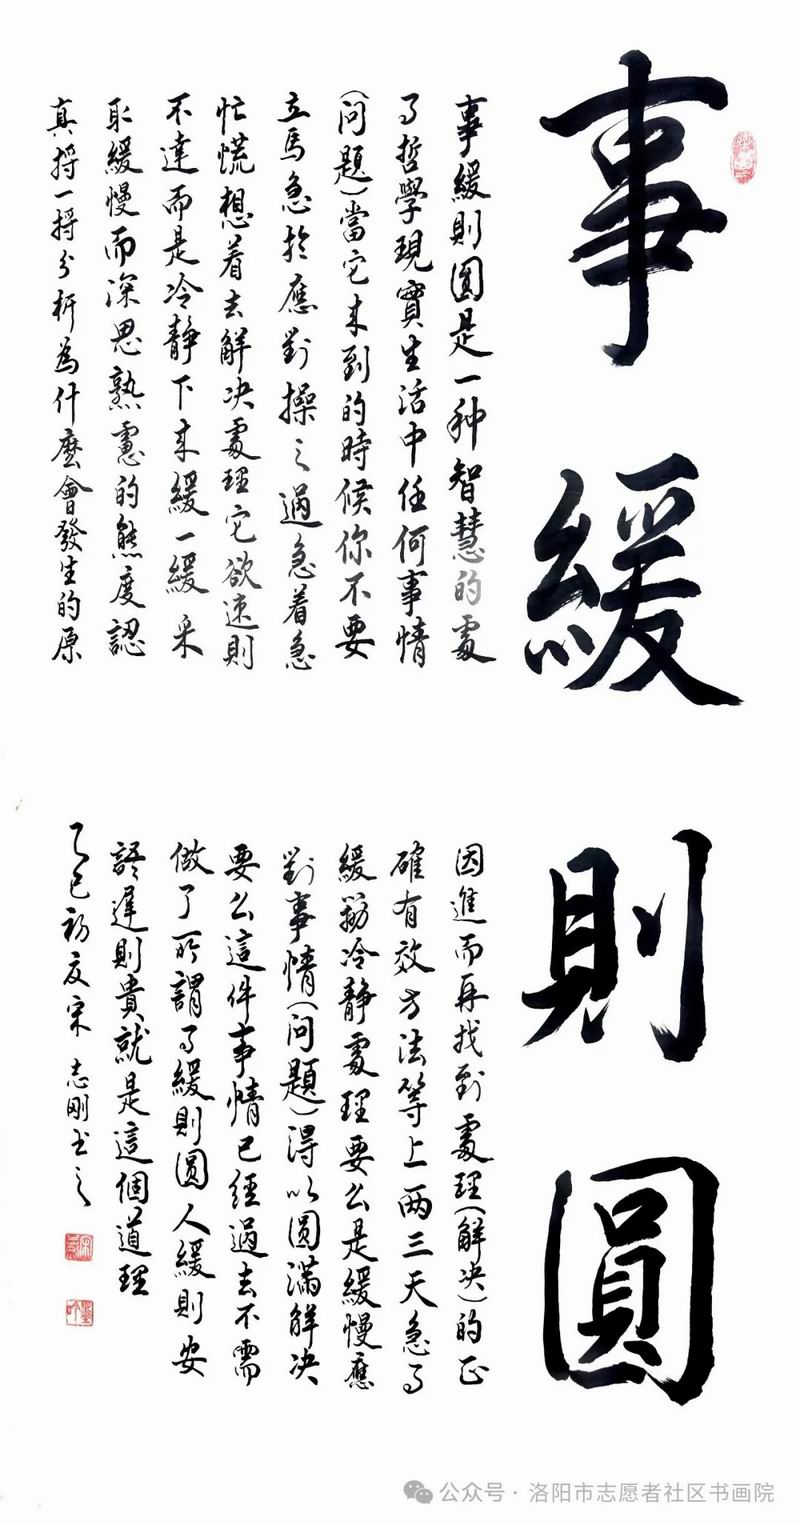 事緩則圓
事緩則圓是一种智慧的處
事哲學現實生活中任何事情
(问題)當它来到的時候你不要
立馬急於應對操之過急着急
忙慌想着去解决處理它欲速則
不達而是冷靜下来緩一緩采
取緩慢而深思熟慮的態度認
真捋一捋分析為什麽會發生的原
因進而再找到處理(解决)的正
確有效方法等上两三天急事
緩辦冷靜處理要么是緩慢應
對事情(问題)得以圓滿解决
要么這件事情已經過去不需
做了所謂事緩則圓人緩則安
語遲則貴就是這個道理
乙巳初夏宋志剛书之
公众号·洛阳市志愿者社区书画院